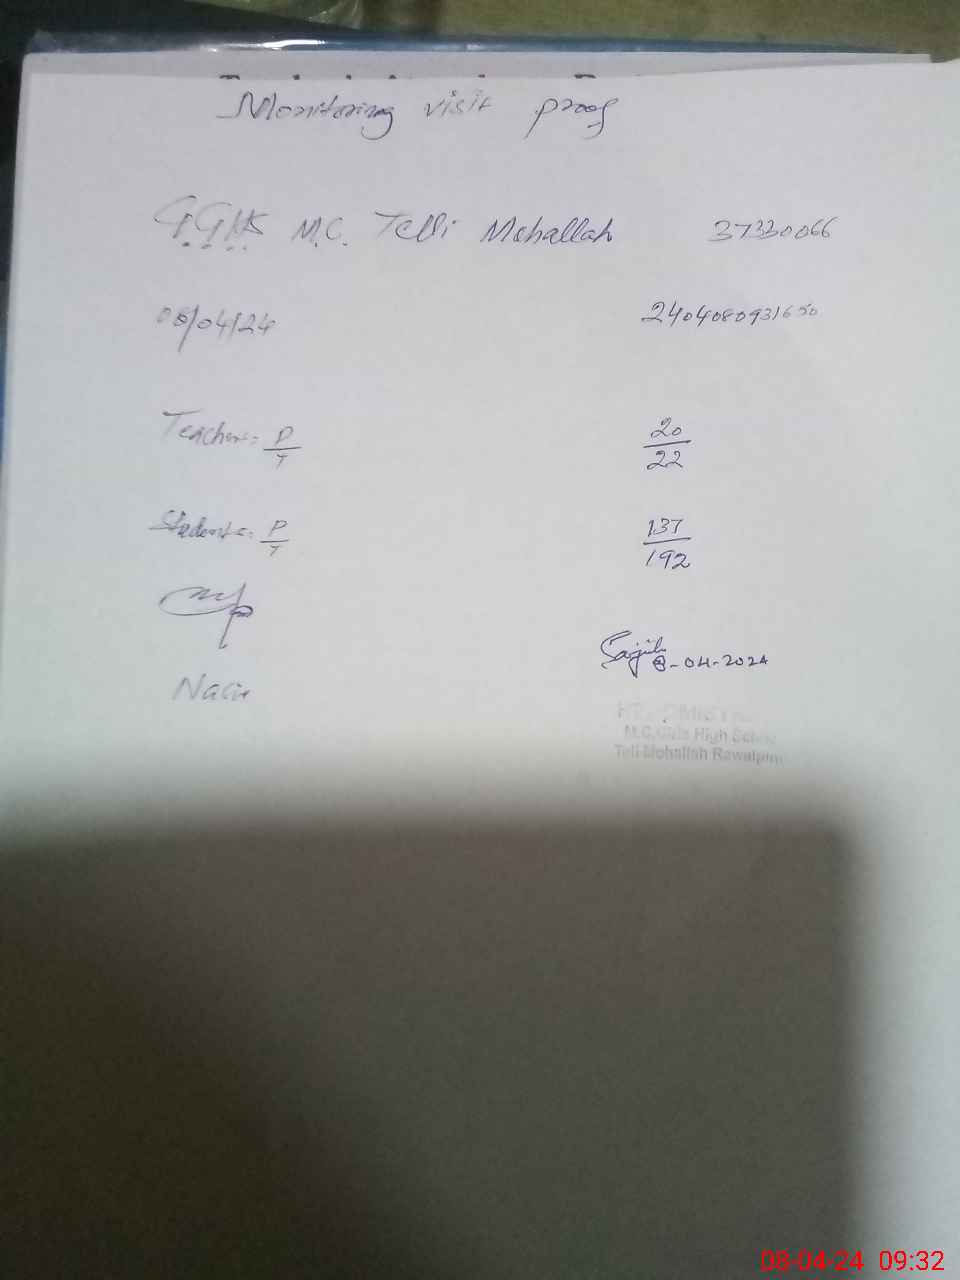 Monitoring visit proof
G.G.H.S M.C. Telli Mohallah 37330066
08/04/24 2404080931650
Teachers= P/T 20/22
Students= P/T 137/192
8-04-2024
Nasir
M.C. Girls High School
Teli Mohallah Rawalpindi
08-04-24 09:32